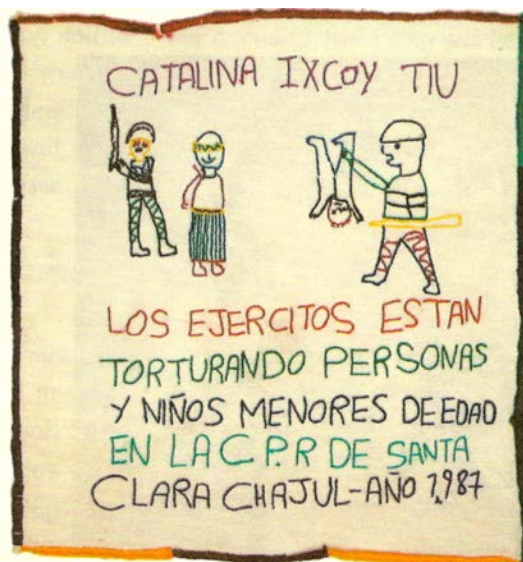 CATALINA IXCOY TIU
LOS EJERCITOS ESTAN
TORTURANDO PERSONAS
Y NIÑOS MENORES DE EDAD
EN LA C.P.R DE SANTA
CLARA CHAJUL-AÑO 1,987